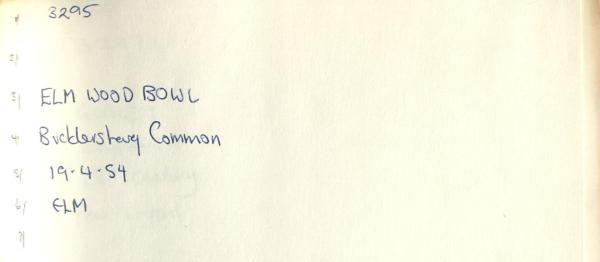 1/ 3295
2/
3/ ELM WOOD BOWL
4/ Bucklersbury Common
5/ 19.4.54
6/ ELM
7/